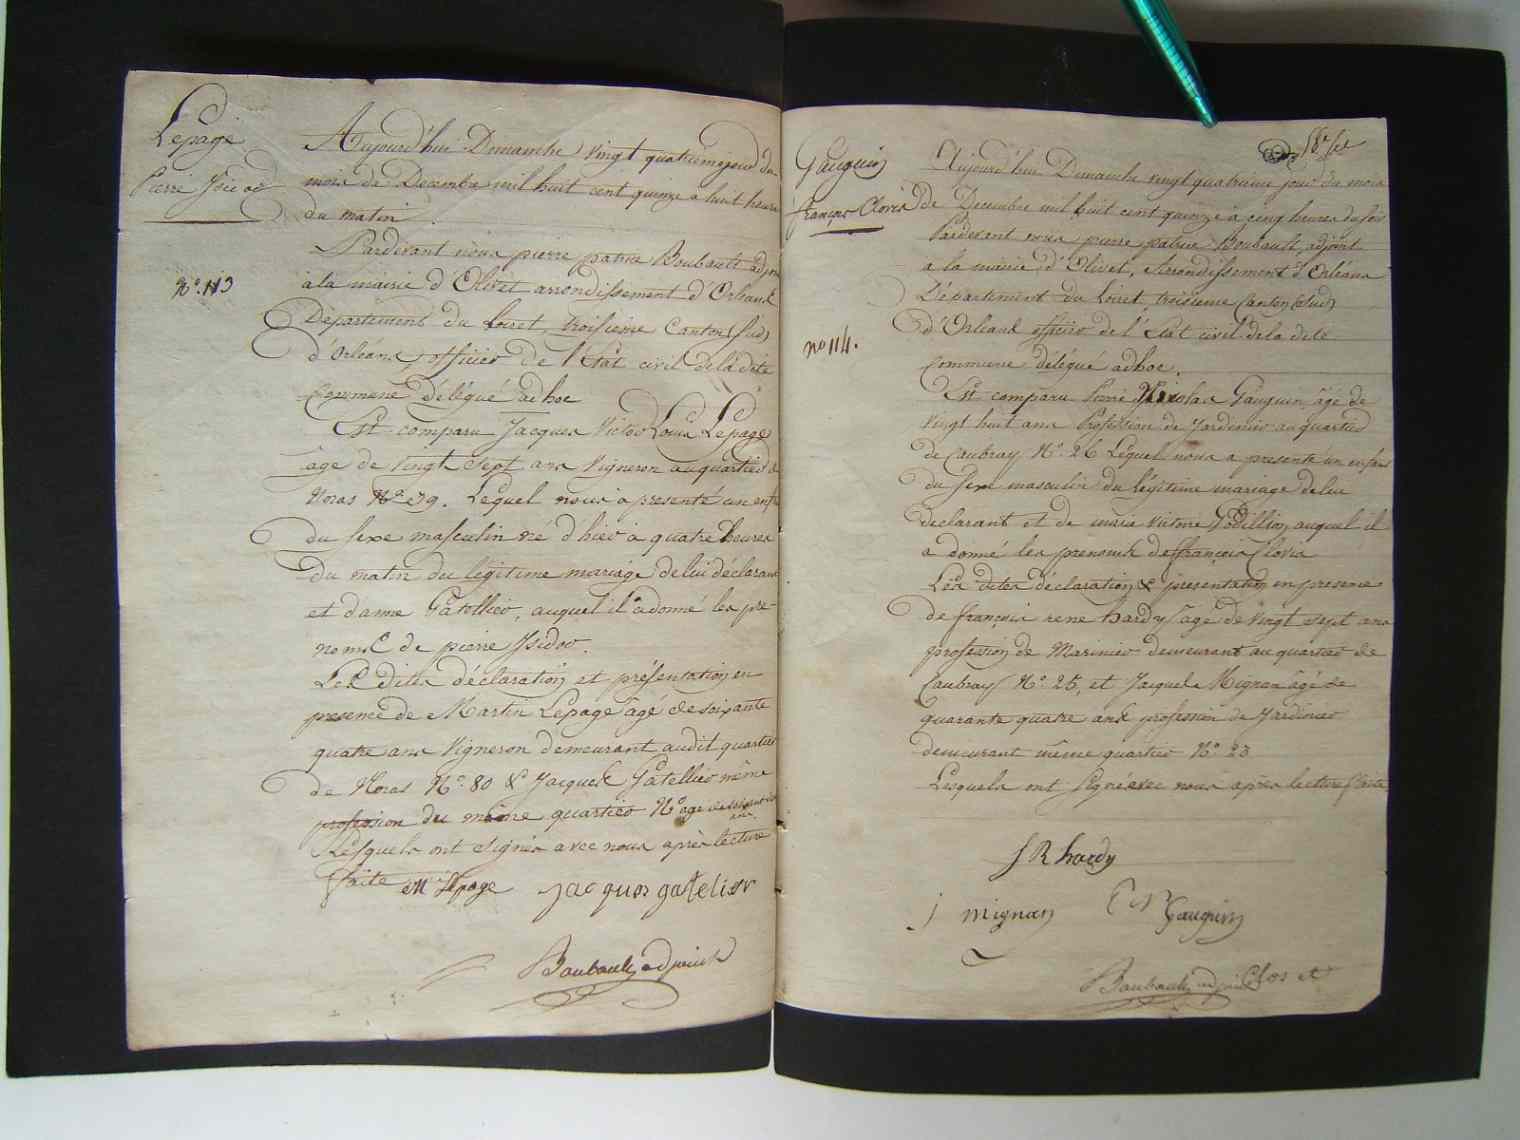 Lepage
Pierre Isidor
No. 113
Aujourd'hui Dimanche vingt quatrieme jour du
mois de Decembre mil huit cent quinze à huit heures
du matin.
Pardevant nous pierre patrice Boubault adjoint
à la mairie d'Olivet arrondissement d'Orleans
Departement du Loiret, troisieme Canton (Sud)
d'Orléans, officier de l'Etat civil de la dite
Commune délégué adhoc
Est comparu Jacques Victor Louis Lepage
âge de vingt sept ans Vigneron au quartier de
Noras No. 79. Lequel nous a presenté un enfant
du sexe masculin né d'hier à quatre heures
du matin du légitime mariage de lui déclarant
et d'anne Gatellier, auquel il a donné les pre-
noms de pierre Isidor.
Les dites déclaration et présentation en
presence de Martin Lepage âgé de soixante
quatre ans Vigneron demeurant audit quartier
de Noras No. 80 & Jacques Gatellier même
profession du même quartier No age de
ans
Lesquels ont signés avec nous après lecture
faite M Lepage jacques gatelier
Boubault adjoint
Gauguin
françois Clovis
no 114.
Aujourd'hui Dimanche vingt quatrieme jour du mois
de Decembre mil huit cent quinze à cinq heures du soir
Pardevant nous pierre patrice Boubault, adjoint
a la mairie d'Olivet, Arrondissement d'Orléans
Département du Loiret troisieme Canton (Sud)
d'Orleans officier de l'Etat civil de la dite
Commune délégué adhoc.
Est comparu Pierre Nicolas Gauguin âgé de
vingt huit ans Profession de Jardinier au quartier
de Caubray No. 26 Lequel nous a presenté un enfant
du sexe masculin du légitime mariage de lui
declarant et de marie Victoire Godillion auquel il
a donné les prenoms de françois Clovis
Les dites déclaration & presentation en presence
de françois rene hardy âgé de vingt sept ans
profession de Marinier demeurant au quartier de
Caubray No. 25, et Jacques Mignan âgé de
quarante quatre ans profession de Jardinier
demeurant même quartier No. 23
Lesquels ont signé avec nous après lecture faite
f R hardy
j mignan
Gauguin
Boubault adjoint
Clos et